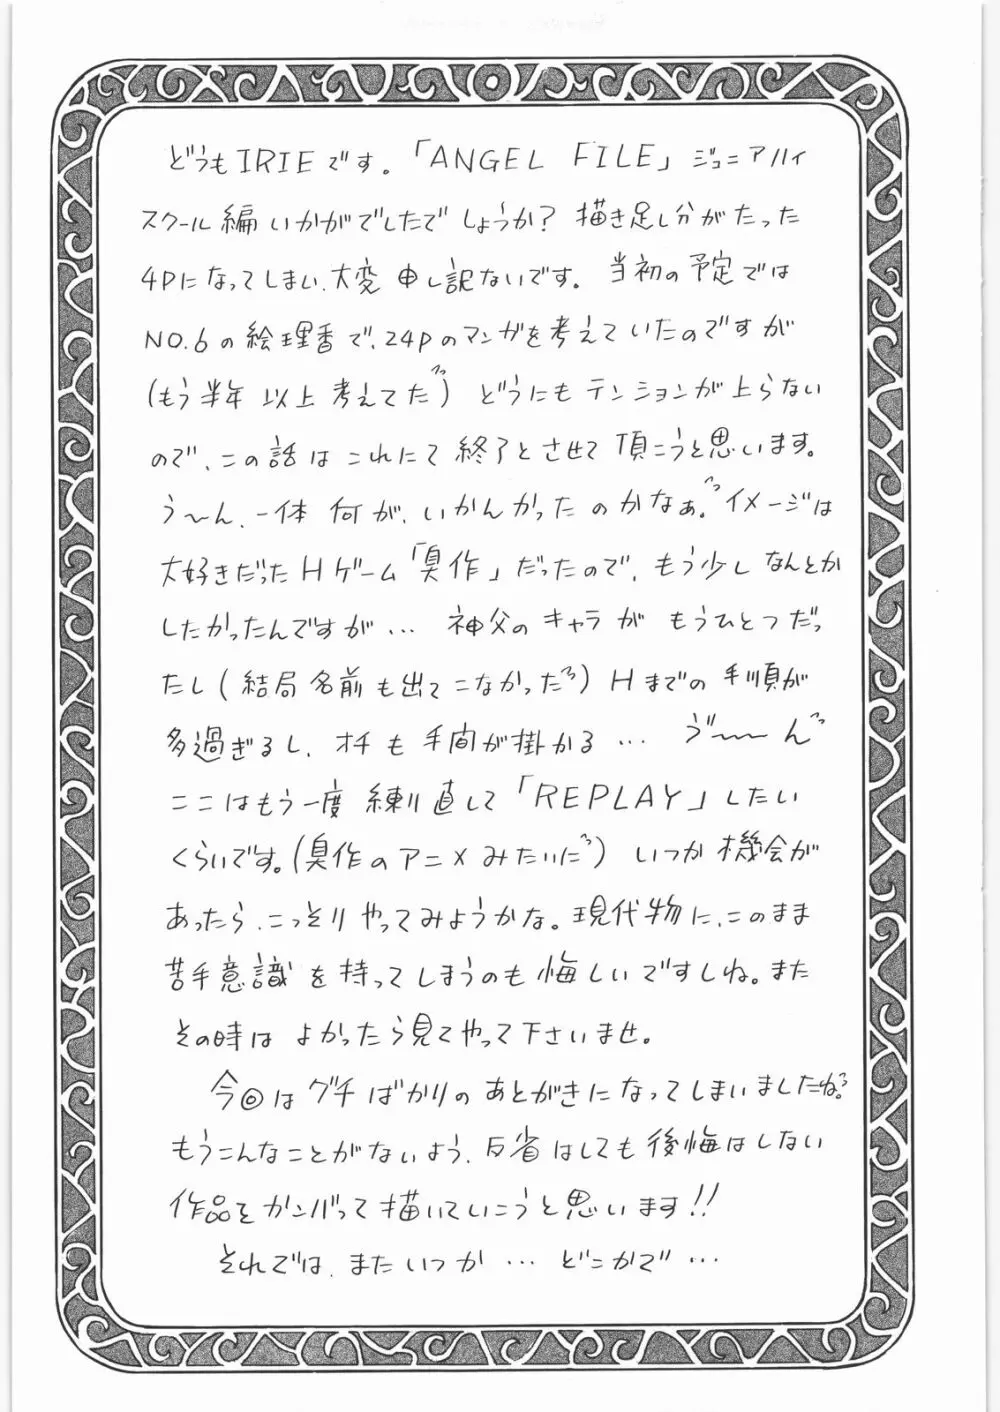 どうもIRIEです。「ANGEL FILE」ジュニアハイ
スクール編いかがでしたでしょうか？描き足し分がたった
4Pになってしまい、大変申し訳ないです。当初の予定では
NO.6の絵理香で、24Pのマンガを考えていたのですが
(もう半年以上考えてたっ)どうにもテンションが上らない
ので、この話はこれにて終了とさせて頂こうと思います。
う〜ん、一体何が、いかんかったのかなぁ。っイメージは
大好きだったHゲーム「臭作」だったので、もう少しなんとか
したかったんですが…神父のキャラがもうひとつだっ
たし(結局名前も出てこなかったっ)Hまでの手順が
多過ぎるし、オチも手間が掛かる…ゔ〜〜んっ
ここはもう一度練り直して「REPLAY」したい
くらいです。(臭作のアニメみたいにっ)いつか機会が
あったら、こっそりやってみようかな。現代物に、このまま
苦手意識を持ってしまうのも悔しいですしね。また
その時はよかったら見てやって下さいませ。
今回はグチばかりのあとがきになってしまいましたね。っ
もうこんなことがないよう、反省はしても後悔はしない
作品をガンバって描いていこうと思います!!
それでは、またいつか…どこかで…